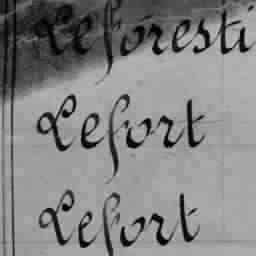 Leforesti
Lefort
Lefort